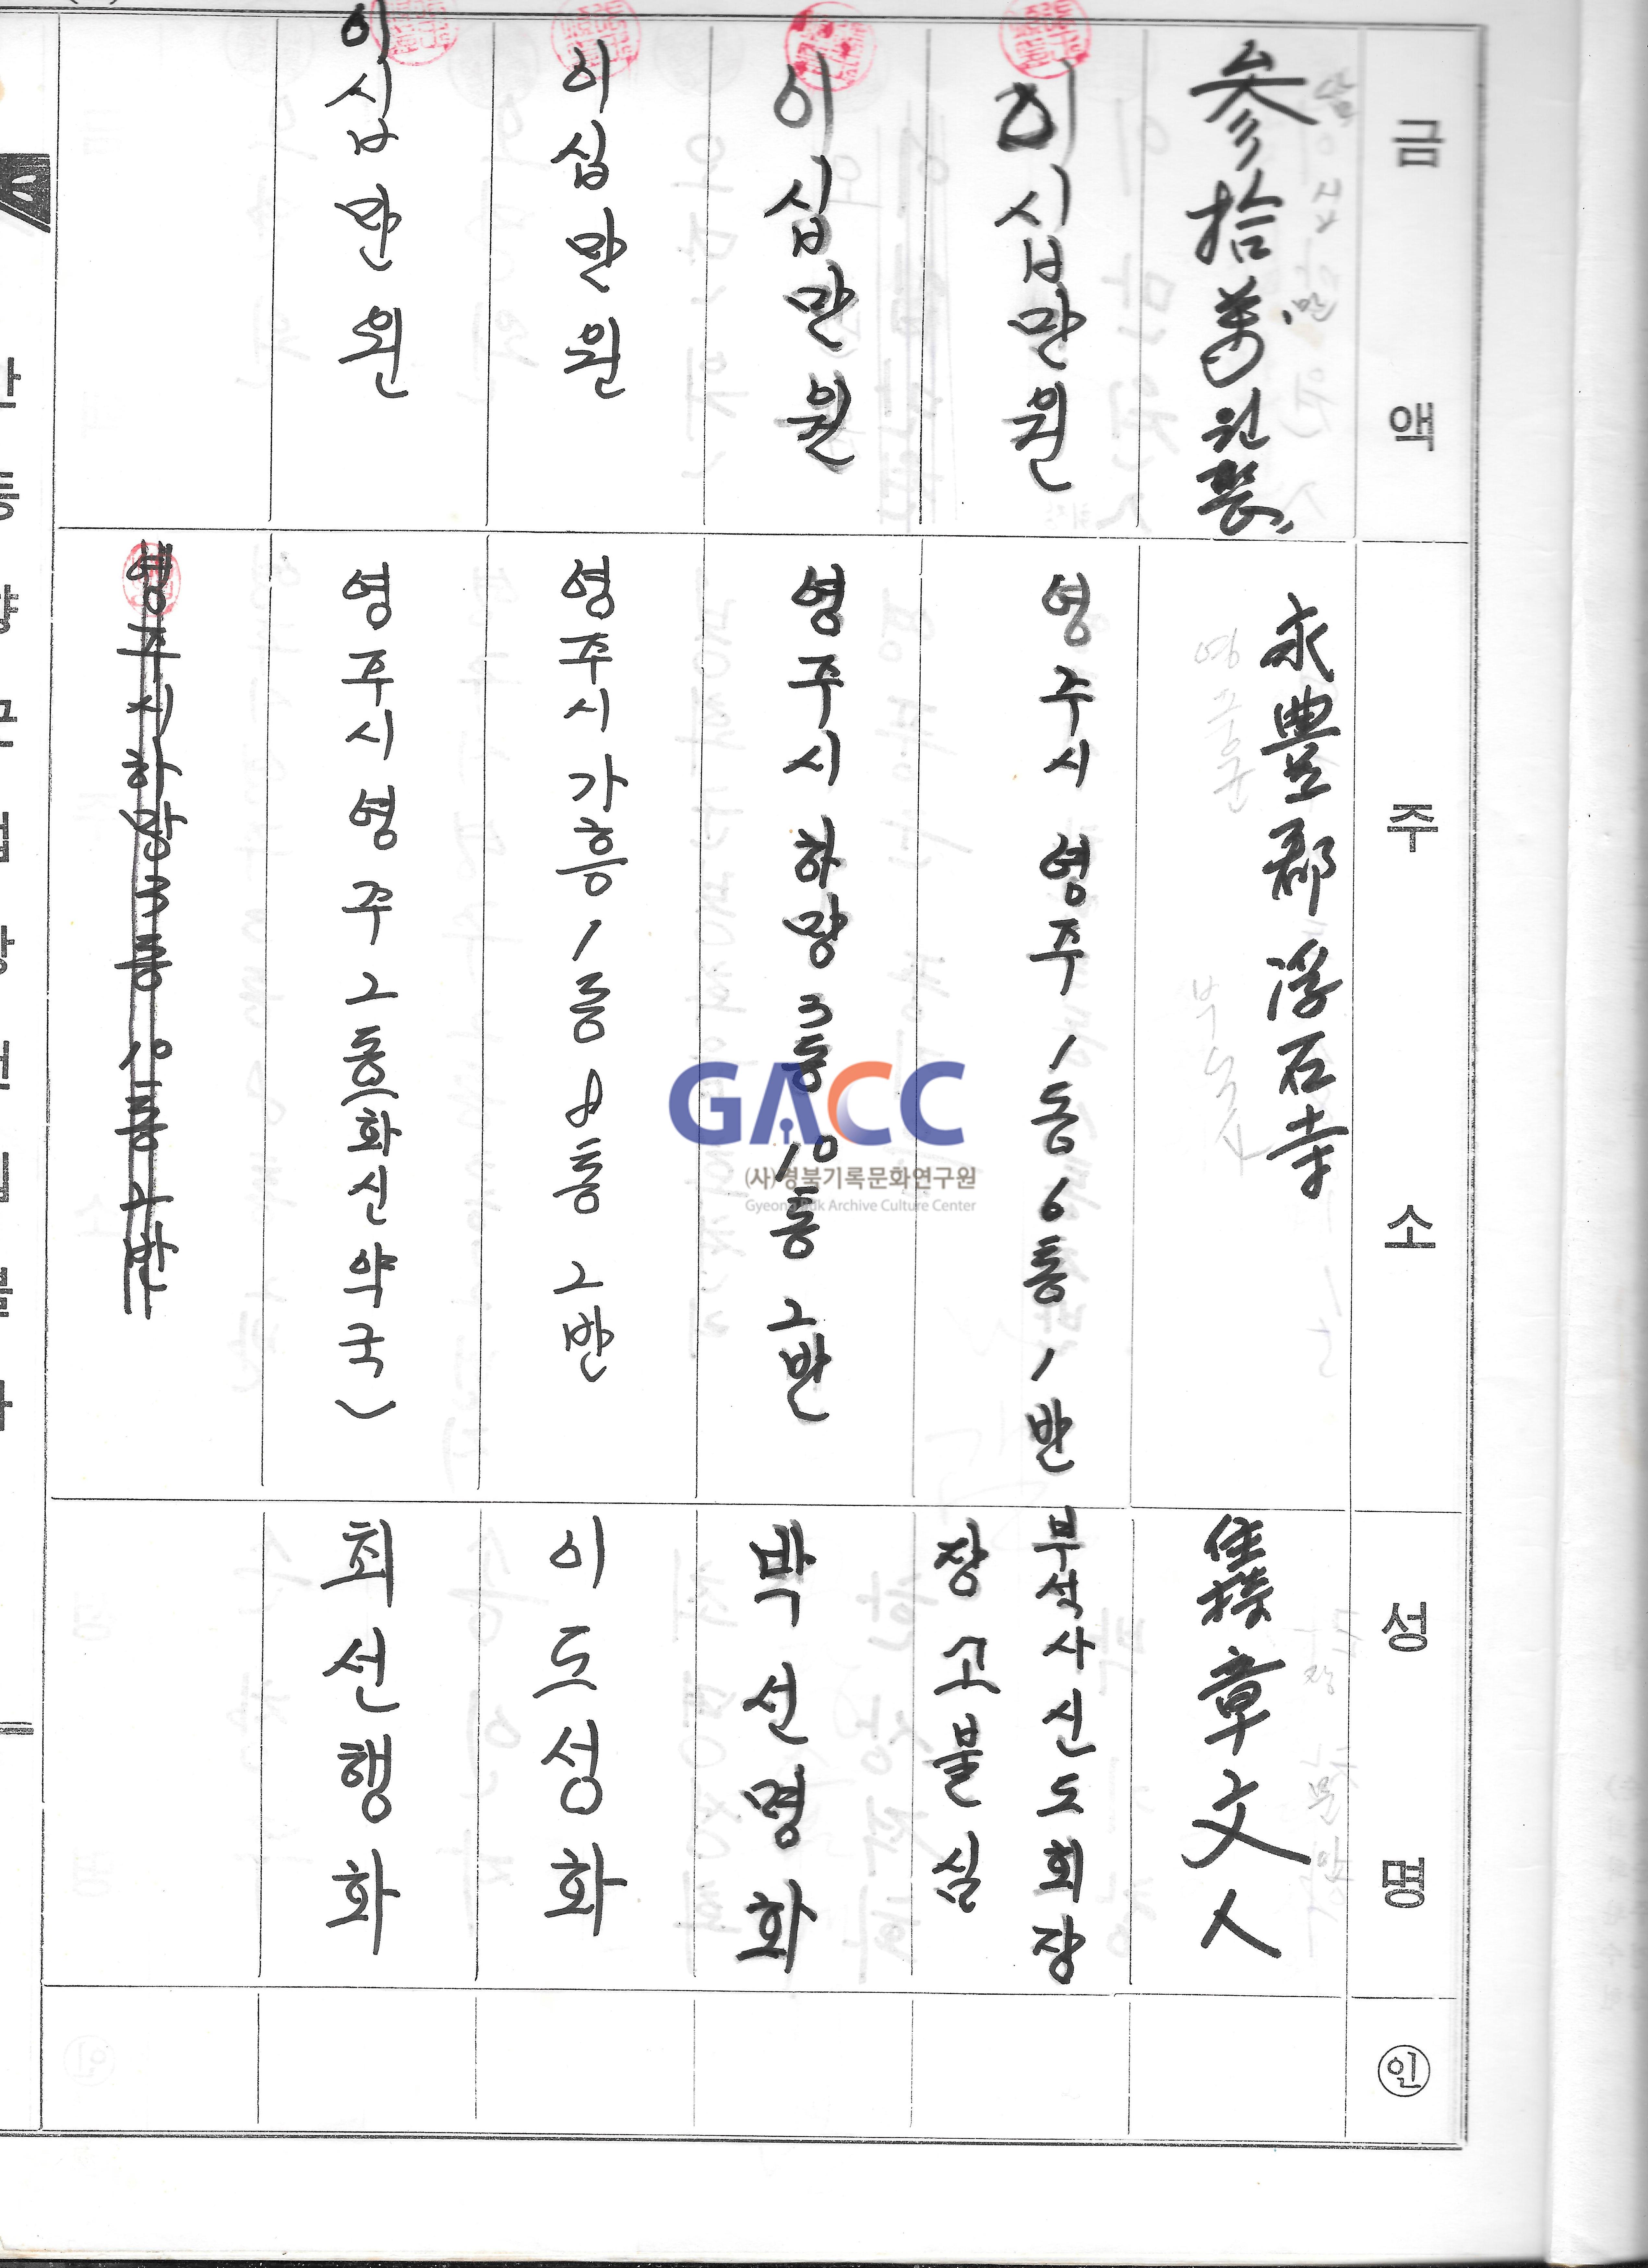 금액
주소
성명
인
參拾萬원整
永豊郡 浮石寺
住持 章文人
이십만원
영주시 영주 1동 6통 1반
부석사 신도회장
장고불심
이십만원
영주시 하망 3동 10통 2반
박선명화
이십만원
영주시 가흥 1동 8통 2반
이도성화
이십만원
영주시 영주 2동 (화신약국)
최선행화
영주시 하망 3동 10통 2반
GACC
(사)경북기록문화연구원
Gyeongbuk Archive Culture Center